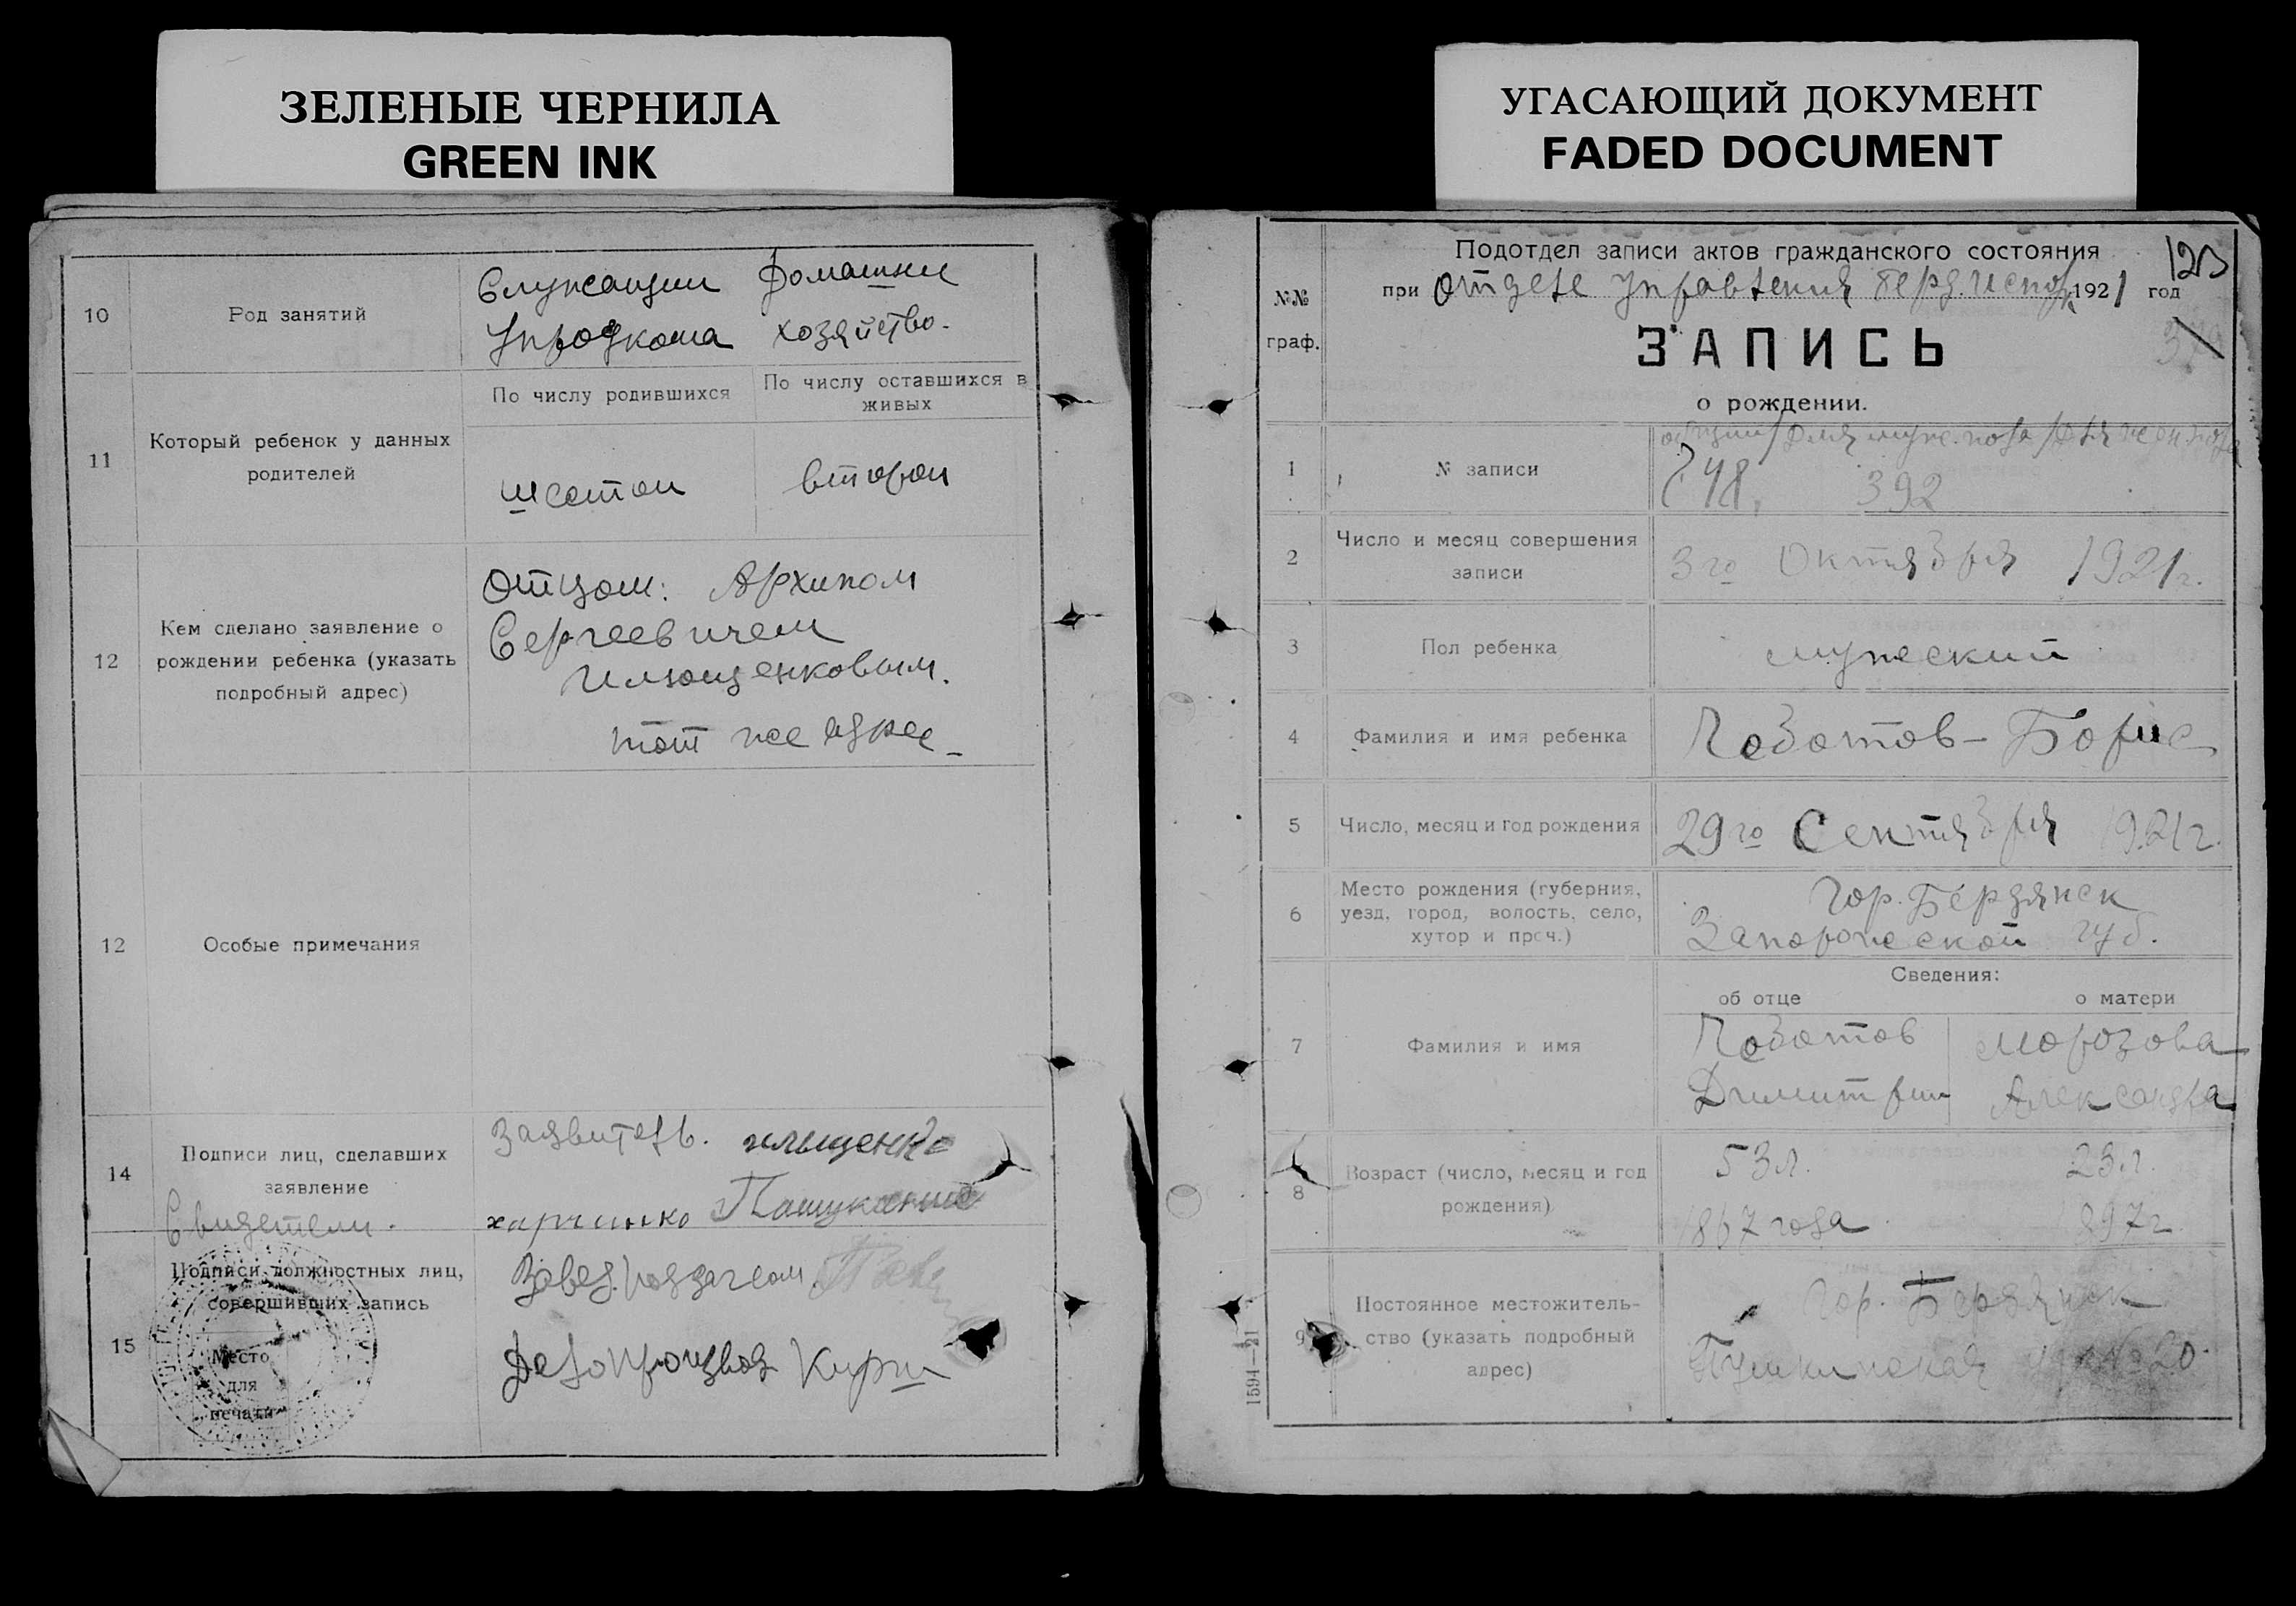 ЗЕЛЕНЫЕ ЧЕРНИЛА
GREEN INK
10
Род занятий
Служащий
Упродкома
Домашнее
хозяйство.
11
Который ребенок у данных
родителей
По числу родившихся
По числу оставшихся в
живых
шестой
второй
12
Кем сделано заявление о
рождении ребенка (указать
подробный адрес)
Отцом: Архипом
Сергеевичем
Ильющенковым.
тот же адрес
12
Особые примечания
14
Подписи лиц, сделавших
заявление
Свидетели.
Заявитель. ильщенко
харченко
15
Подписи должностных лиц,
совершивших запись
Место
для
печати
Завед. подзагсом
Делопроизвод Кирш
УГАСАЮЩИЙ ДОКУМЕНТ
FADED DOCUMENT
№№
граф.
Подотдел записи актов гражданского состояния
123
при отделе управления Берд. Испол. 1921 год
ЗАПИСЬ
о рождении.
1
№ записи
общий / для муж. пола / для жен. пола
748, 392
2
Число и месяц совершения
записи
3го Октября 1921 г.
3
Пол ребенка
мужеский
4
Фамилия и имя ребенка
Чоботов - Борис
5
Число, месяц и год рождения
29го Сентября 1921 г.
6
Место рождения (губерния,
уезд, город, волость, село,
хутор и проч.)
Гор. Бердянск
Запорожской губ.
Сведения:
об отце
о матери
7
Фамилия и имя
Чоботов
Димитрий
Морозова
Александра
8
Возраст (число, месяц и год
рождения)
53 л.
1867 года
23 л.
1897 г.
9
Постоянное местожитель-
ство (указать подробный
адрес)
Гор. Бердянск
Пушкинская ул. № 20.
1594—21